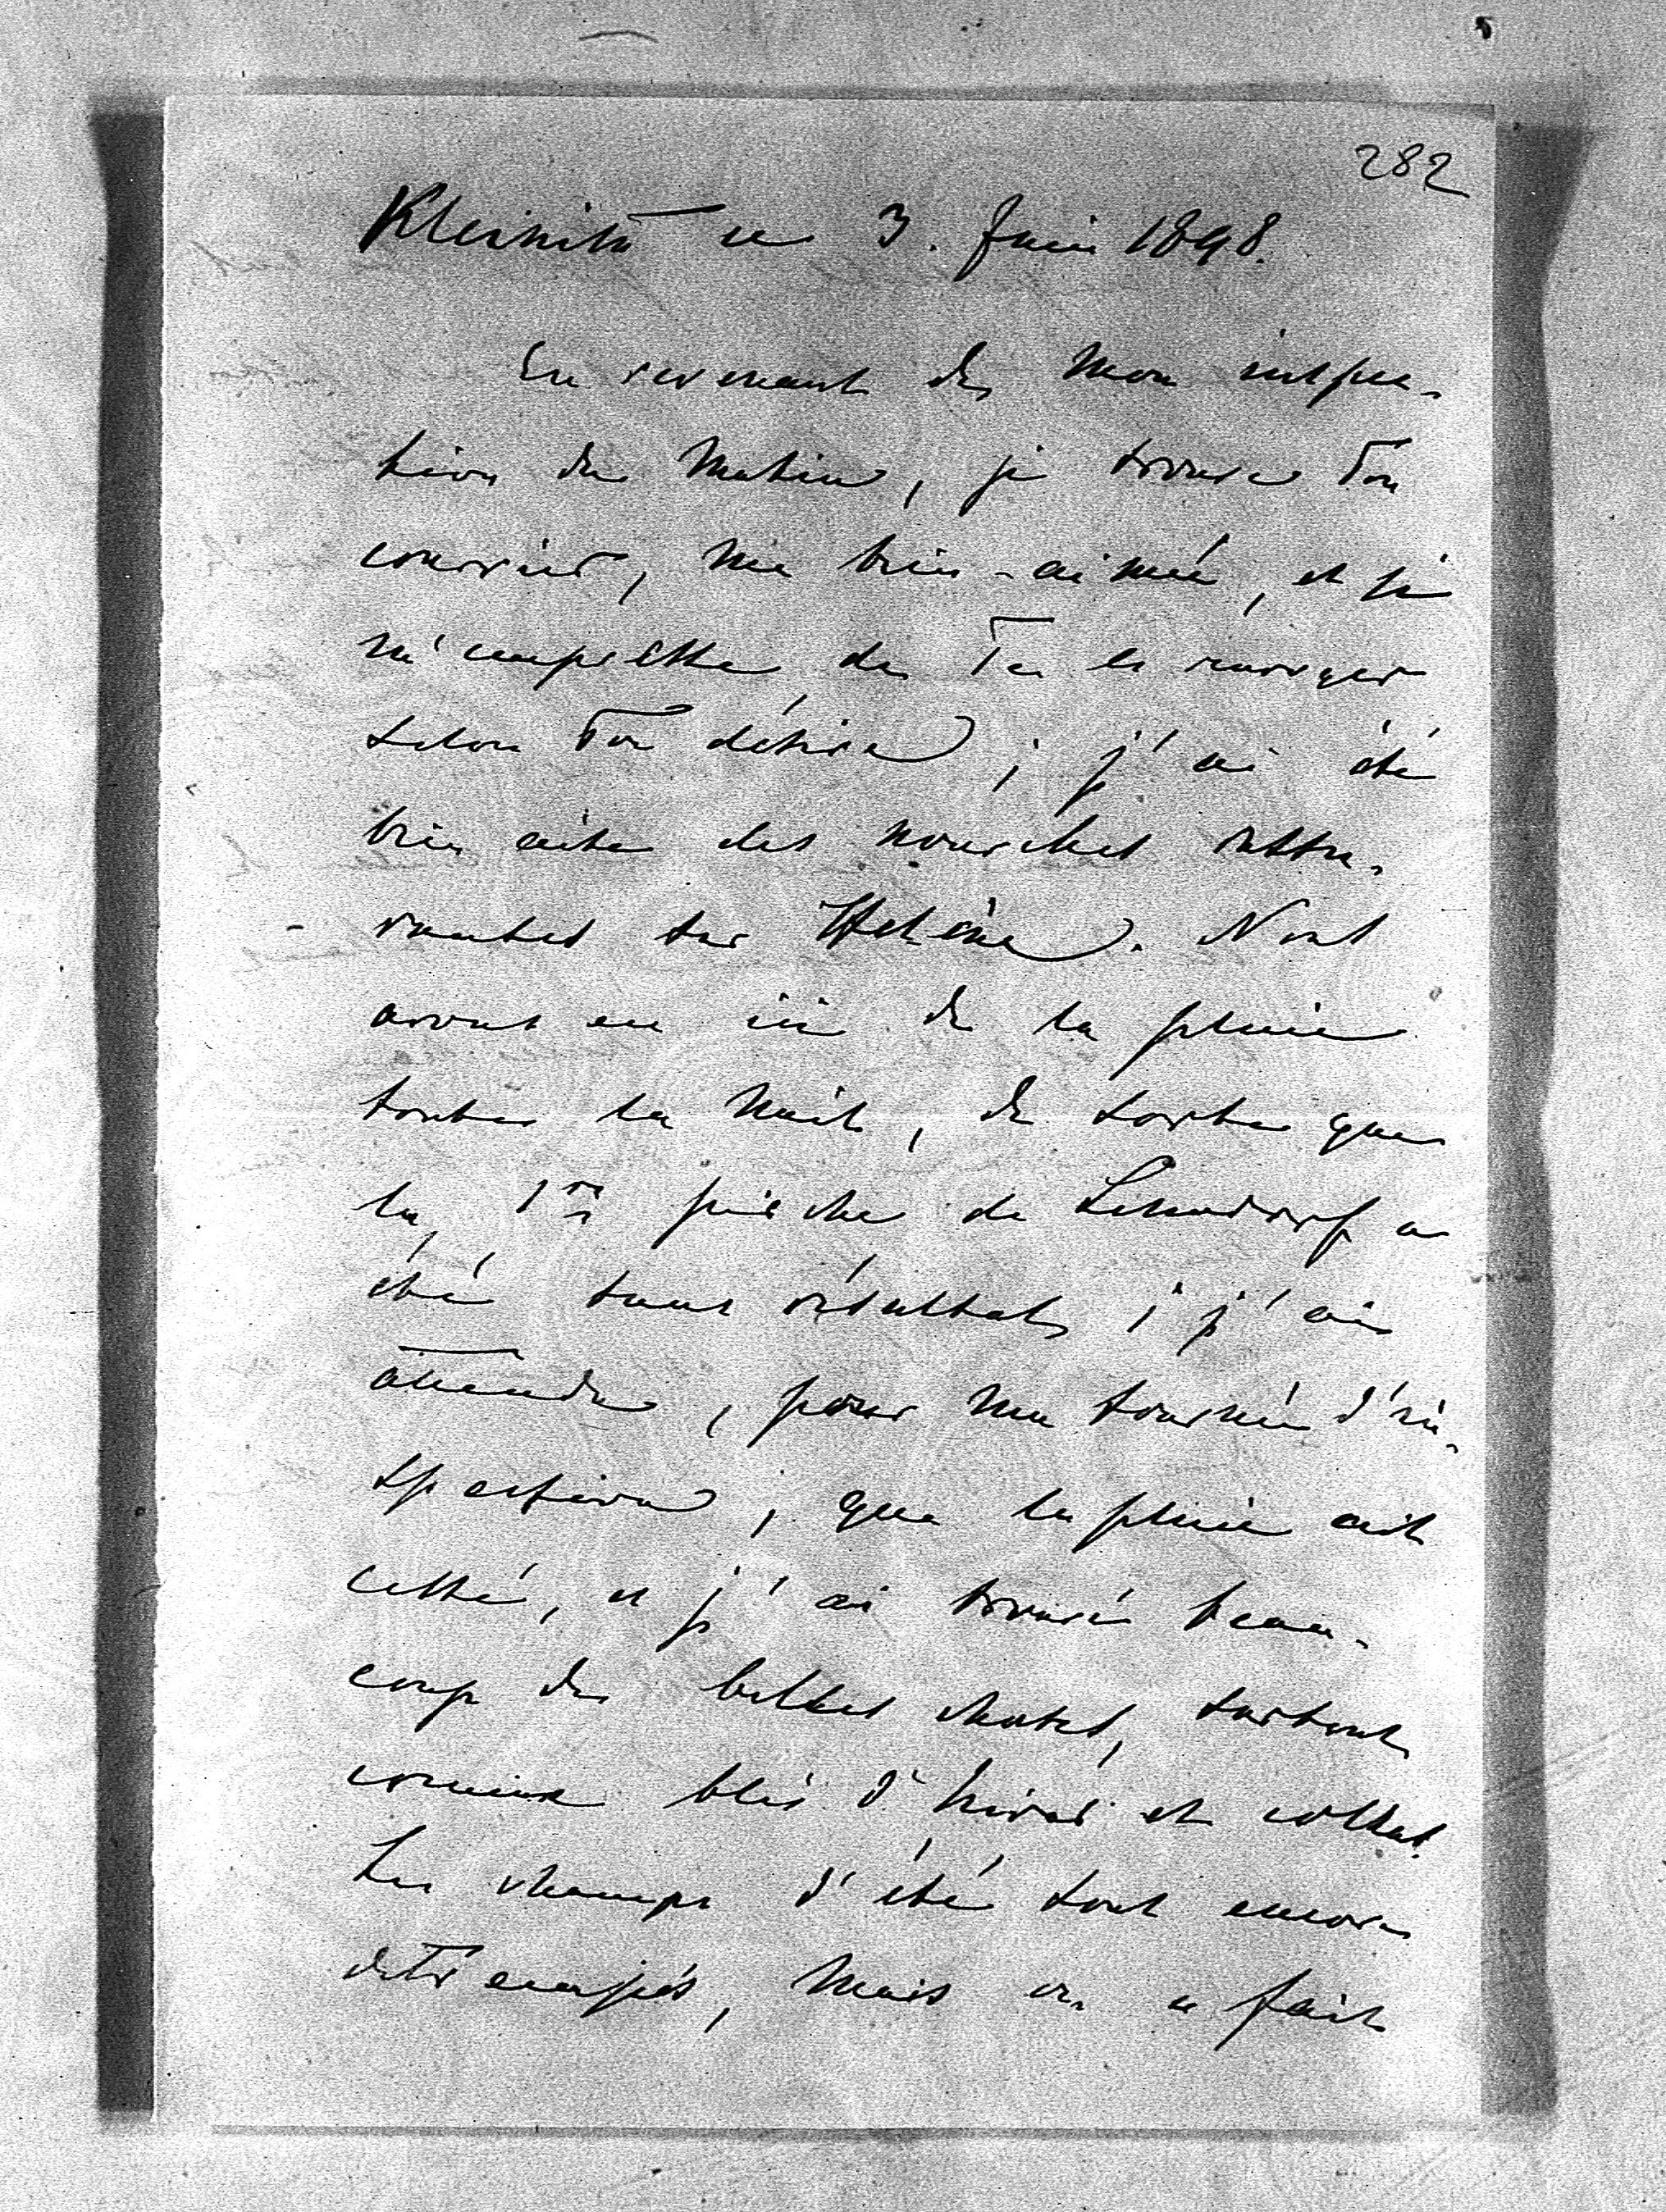 282
Kleinitz ce 3. Juin 1898.
En revenant de mon inspec-
tion du matin, je trouve Ton
courrier, ma bien-aimée, et je
m'empresse de Te le renvoyer
selon Ton désir ; j'ai été
bien aise des nouvelles rassu-
rantes sur Hélène. Nous
avons eu ici de la pluie
toute la nuit, de sorte que
la 1re pirsche de Lehndorf a
été sans résultat ; j'ai
attendu, pour ma tournée d'in-
spection, que la pluie ait
cessé, et j'ai trouvé beau-
coup de belles choses, surtout
comme blés d'hiver et colzas.
Les champs d'été sont encore
détrempés, mais on a fait